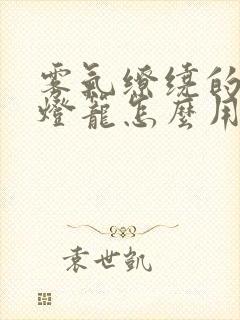 雾氣繚繞的
燈籠怎麼用
袁世凱